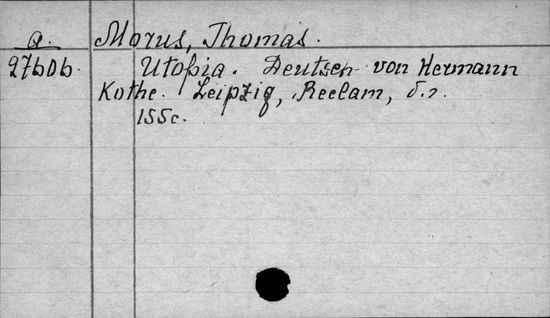 a. Morus, Thomas.
27606. Utopia. Deutsch von Hermann
Kothe. Leipzig, Reclam, d.r.
155c.